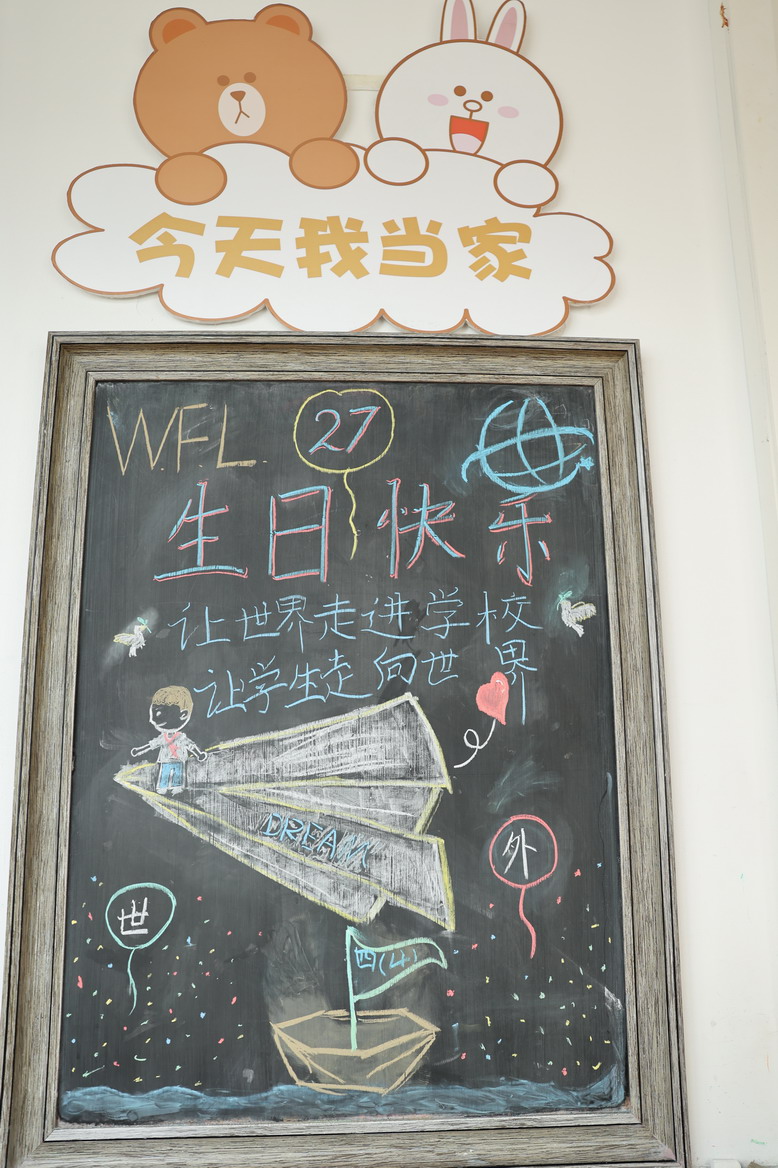 今天我当家
W.F.L 27
生日快乐
让世界走进学校
让学生走向世界
DREAM
外
世
四(4)